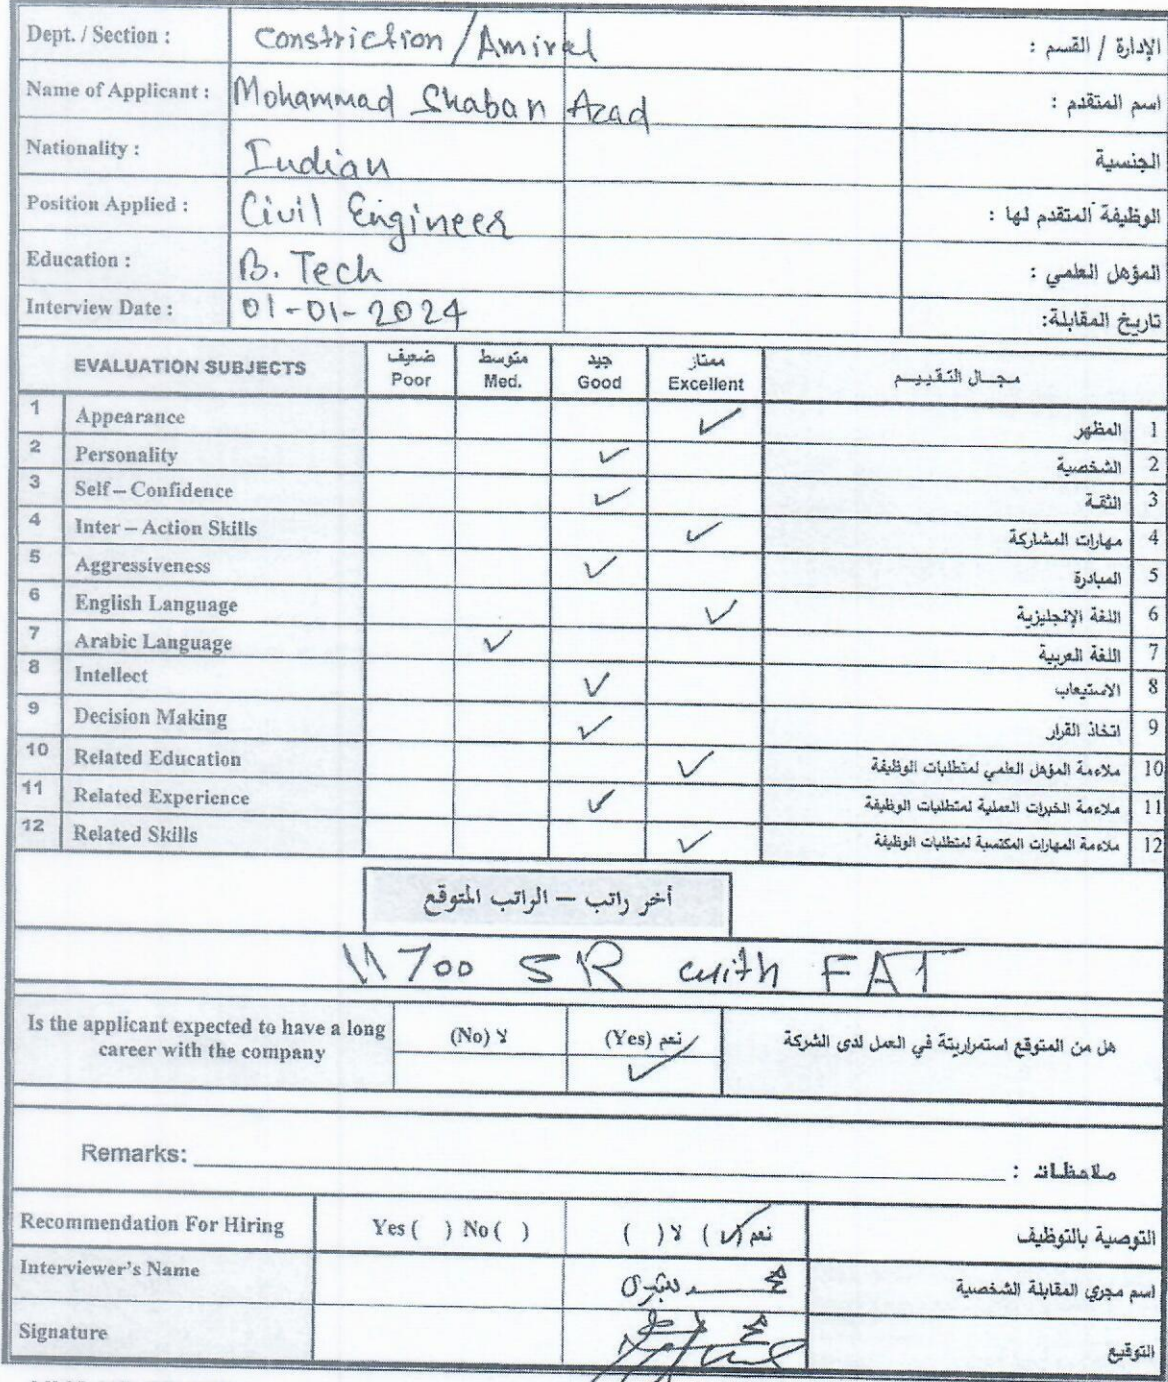 Dept. / Section : Constriction / Amiral الإدارة / القسم :
Name of Applicant : Mohammad Shaban Azad اسم المتقدم :
Nationality : Indian الجنسية
Position Applied : Civil Engineer الوظيفة المتقدم لها :
Education : B. Tech المؤهل العلمي :
Interview Date : 01-01-2024 تاريخ المقابلة:
EVALUATION SUBJECTS ضعيف Poor متوسط Med. جيد Good ممتاز Excellent مجال التقييم
1 Appearance ✓ المظهر 1
2 Personality ✓ الشخصية 2
3 Self – Confidence ✓ الثقة 3
4 Inter – Action Skills ✓ مهارات المشاركة 4
5 Aggressiveness ✓ المبادرة 5
6 English Language ✓ اللغة الإنجليزية 6
7 Arabic Language ✓ اللغة العربية 7
8 Intellect ✓ الاستيعاب 8
9 Decision Making ✓ اتخاذ القرار 9
10 Related Education ✓ ملاءمة المؤهل العلمي لمتطلبات الوظيفة 10
11 Related Experience ✓ ملاءمة الخبرات العملية لمتطلبات الوظيفة 11
12 Related Skills ✓ ملاءمة المهارات المكتسبة لمتطلبات الوظيفة 12
أخر راتب – الراتب المتوقع
11700 SR with FAT
Is the applicant expected to have a long career with the company لا (No) نعم (Yes) ✓ هل من المتوقع استمراريتة في العمل لدى الشركة
Remarks: ملاحظات :
Recommendation For Hiring Yes ( ) No ( ) نعم (✓) لا ( ) التوصية بالتوظيف
Interviewer's Name اسم مجري المقابلة الشخصية
Signature التوقيع